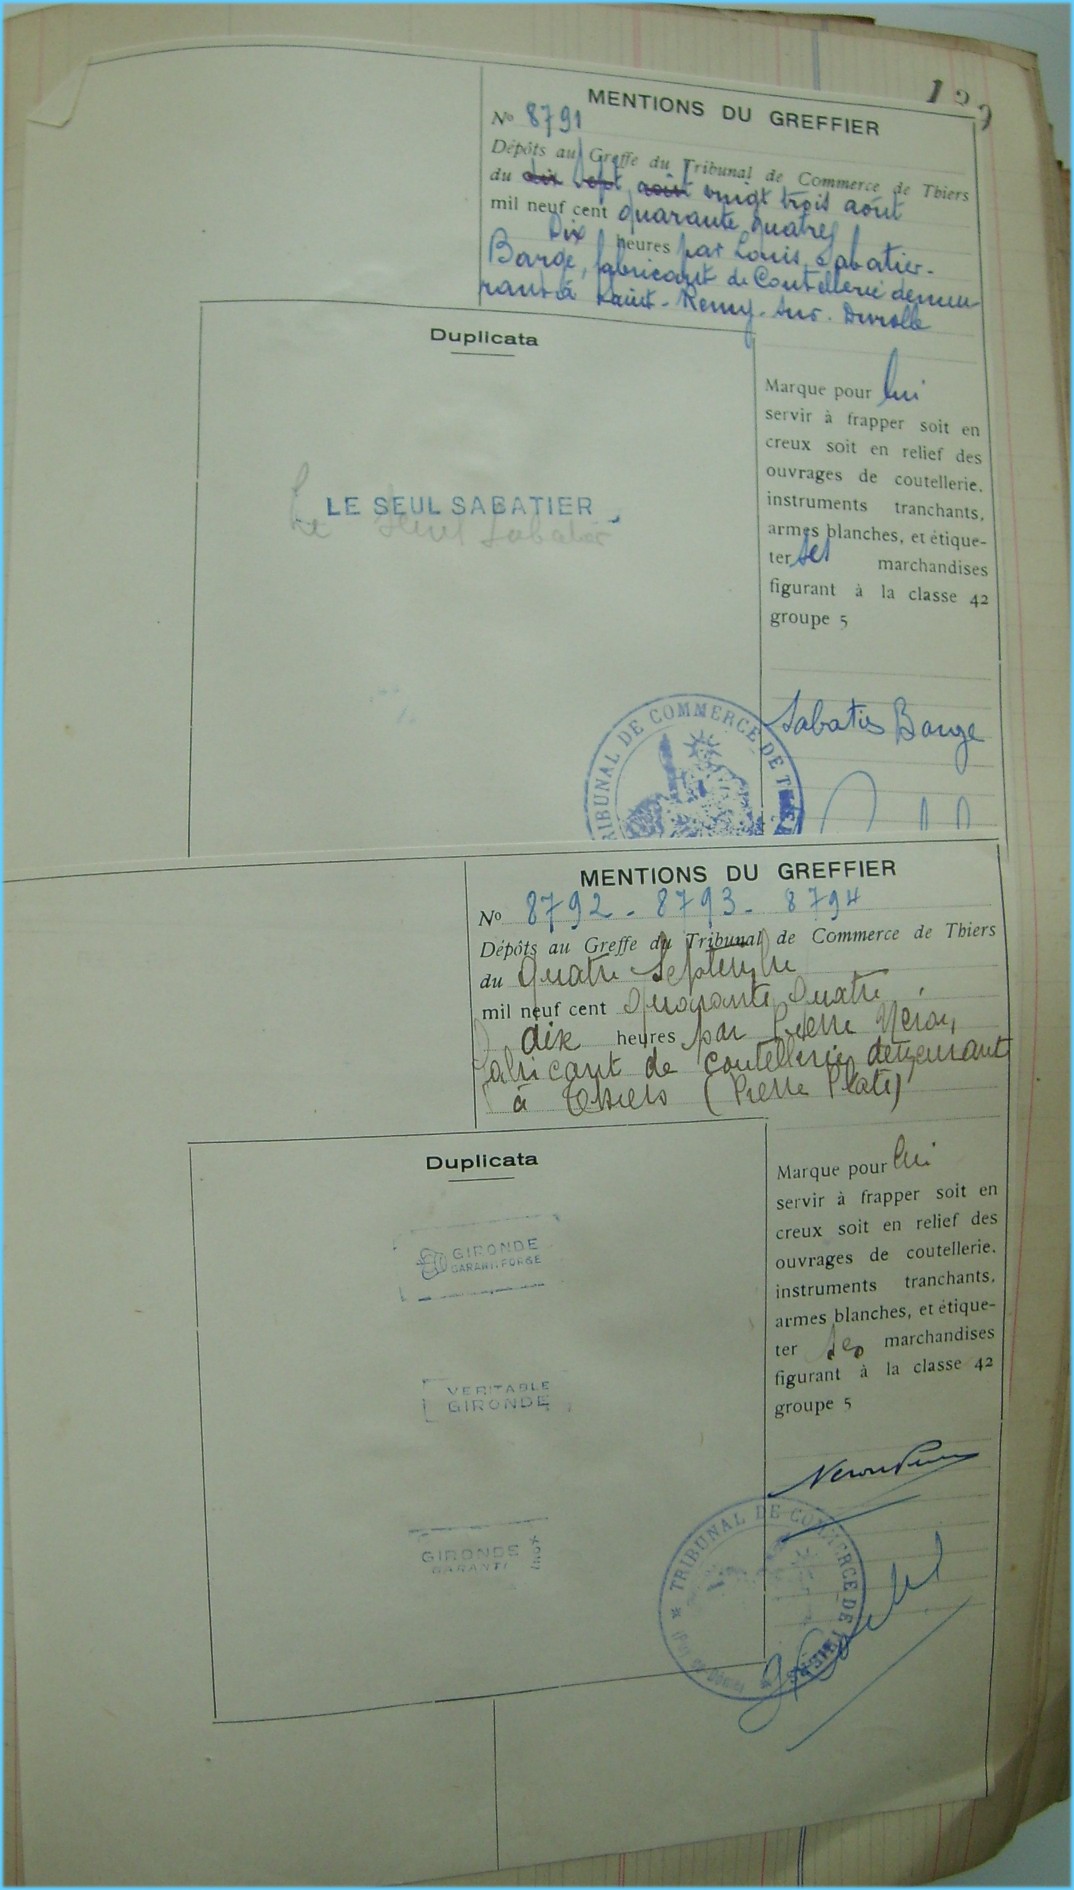 129
MENTIONS DU GREFFIER
No 8791
Dépôts au Greffe du Tribunal de Commerce de Thiers
du dix sept août vingt trois août
mil neuf cent quarante quatre
Dix heures par Louis Sabatier-
Barge, fabricant de Coutellerie demeu-
rant à Saint-Remy-sur-Durolle
Duplicata
LE SEUL SABATIER
Le Seul Sabatier
Marque pour lui
servir à frapper soit en
creux soit en relief des
ouvrages de coutellerie,
instruments tranchants,
armes blanches, et étique-
ter ses marchandises
figurant à la classe 42
groupe 5
Sabatier Barge
TRIBUNAL DE COMMERCE DE
MENTIONS DU GREFFIER
No 8792 - 8793 - 8794
Dépôts au Greffe du Tribunal de Commerce de Thiers
du quatre Septembre
mil neuf cent quarante quatre
dix heures par Pierre Néron,
fabricant de coutellerie demeurant
à Thiers (Pierre Plate)
Duplicata
GIRONDE
GARANTI FORGE
VERITABLE
GIRONDE
GIRONDE
GARANTI
Marque pour lui
servir à frapper soit en
creux soit en relief des
ouvrages de coutellerie,
instruments tranchants,
armes blanches, et étique-
ter ses marchandises
figurant à la classe 42
groupe 5
TRIBUNAL DE COMMERCE DE THIERS
(Puy de Dôme)